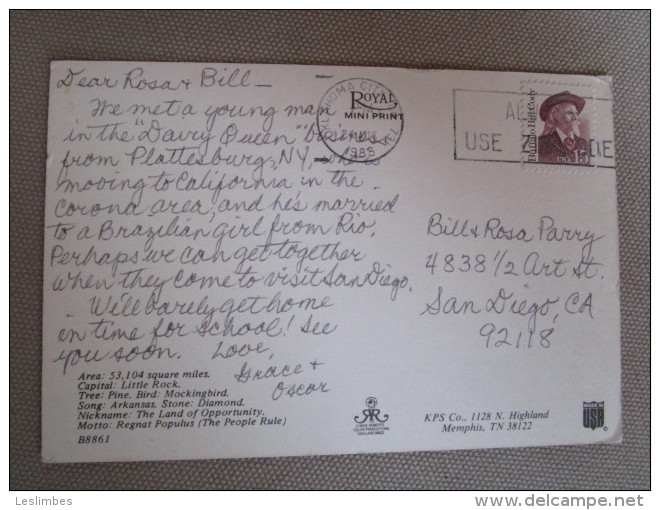 Dear Rosa & Bill —
We met a young man
in the "Dairy Queen" business
from Plattesburg, NY, who is
moving to California in the
corona area, and he's married
to a Brazilian girl from Rio.
Perhaps we can get together
when they come to visit San Diego.
Will barely get home
in time for school! See
you soon. Love,
Grace &
Oscar
Area: 53,104 square miles.
Capital: Little Rock.
Tree: Pine. Bird: Mockingbird.
Song: Arkansas. Stone: Diamond.
Nickname: The Land of Opportunity.
Motto: Regnat Populus (The People Rule)
B8861
ROYAL
MINI PRINT
OKLAHOMA CITY
1988
USE ZIP CODE
Buffalo Bill Cody
USA 15
Bill & Rosa Parry
4838 1/2 Art St.
San Diego, CA
92118
KPS Co., 1128 N. Highland
Memphis, TN 38122
USA
Leslimbes
delcampe.net